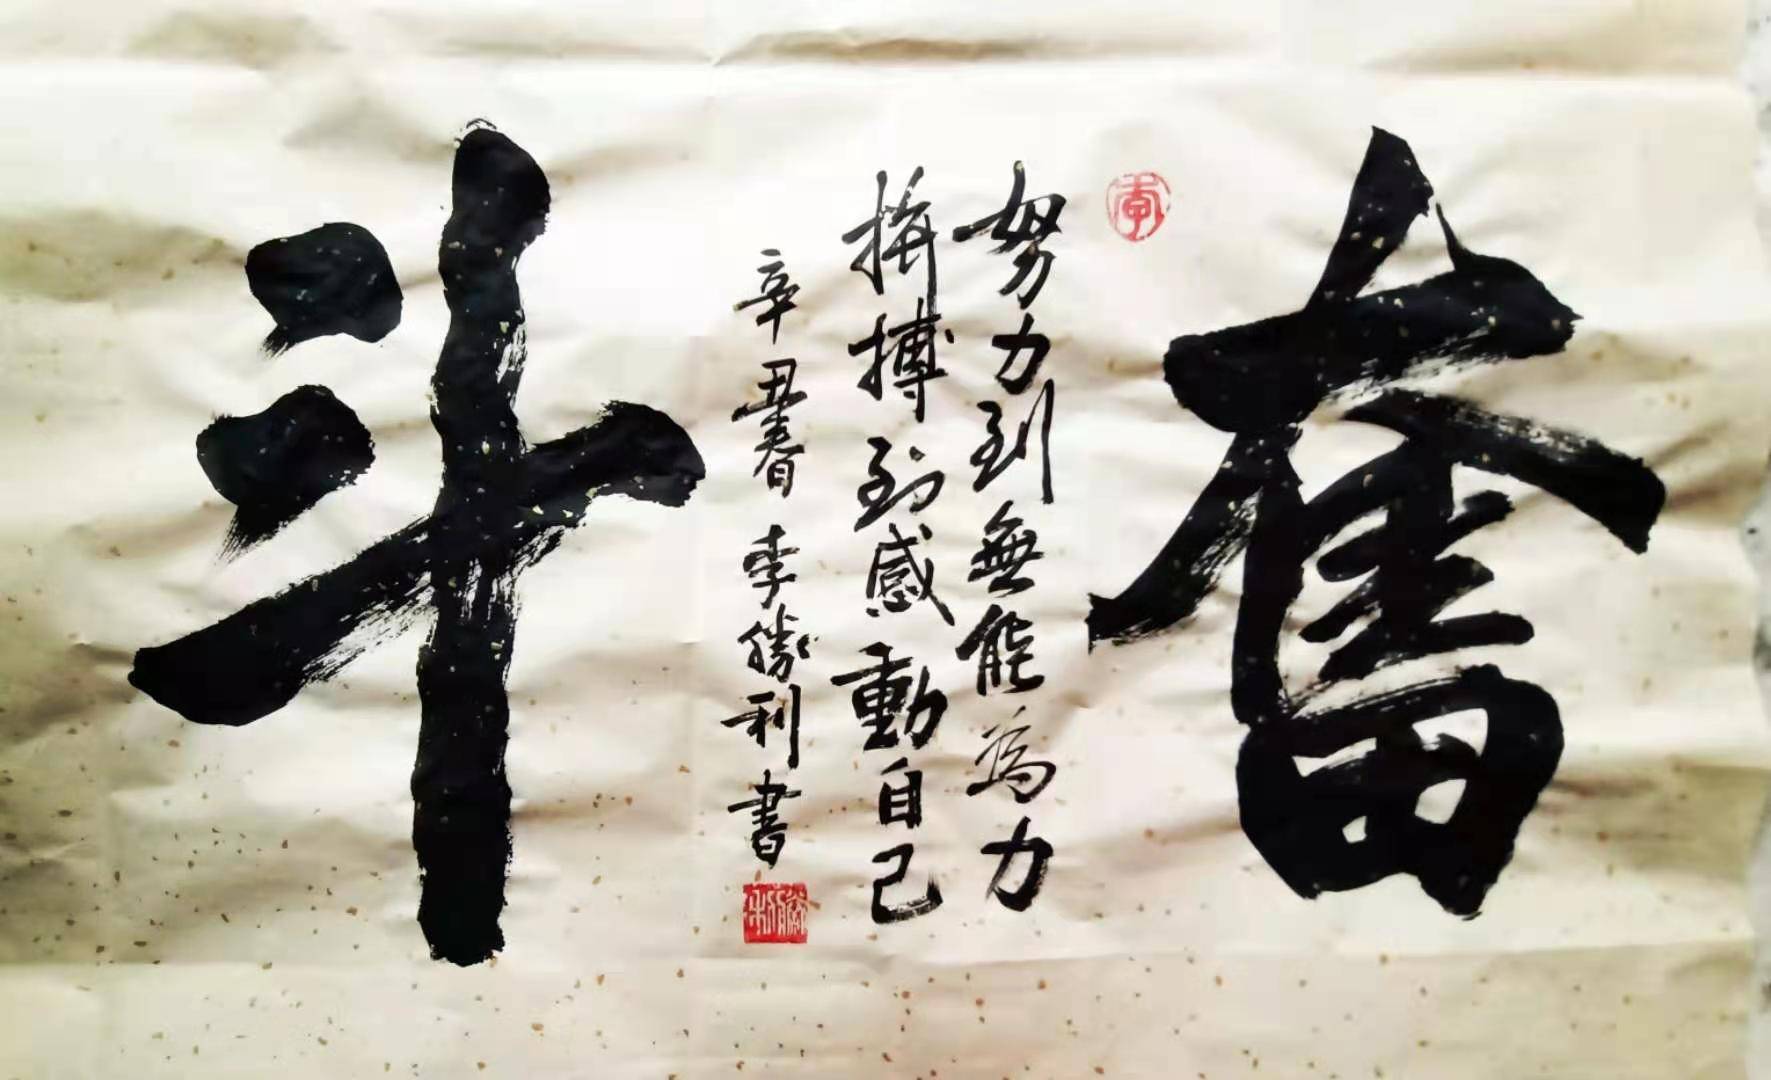 奮
李
努力到無能為力
拼搏到感動自己
辛丑春 李勝利書
斗